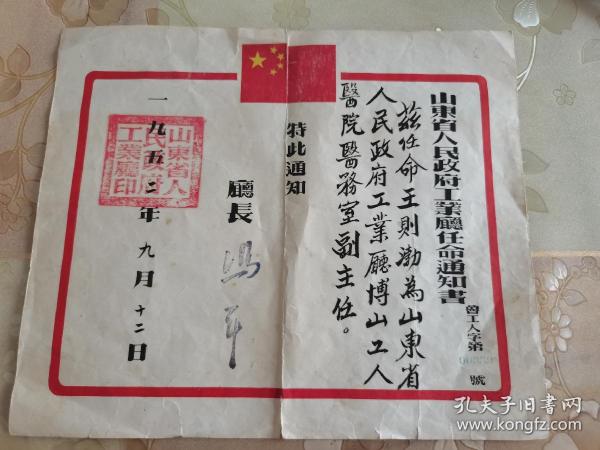 山東省人民政府工業廳任命通知書
魯工人字第
號
茲任命王則渤為山東省
人民政府工業廳博山工人
醫院醫務室副主任。
特此通知
廳長
一九五二年九月十二日
山東省人
民政府
工業廳印
孔夫子旧书网
www.kongfz.com